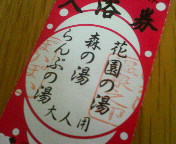 入浴券
花園の湯
森の湯
らんぷの湯
大人用